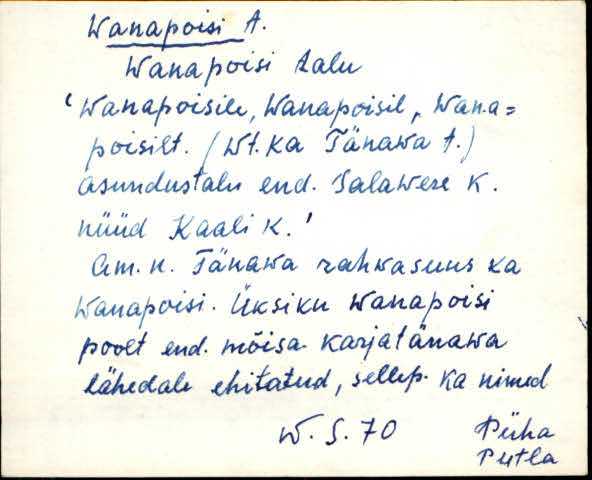 Wanapoisi t.
Wanapoisi talu
'Wanapoisile, Wanapoisil, Wana=
poisilt. (Wt. ka Tänawa t.)
asundustalu end. Salawere k.
nüüd Kaali k.'
Am. n. Tänawa rahwasuus ka
Wanapoisi. Üksiku wanapoisi
poolt end. mõisa karjatänawa
lähedale ehitatud, sellep. ka nimed
W. S. 70 Püha
Putla